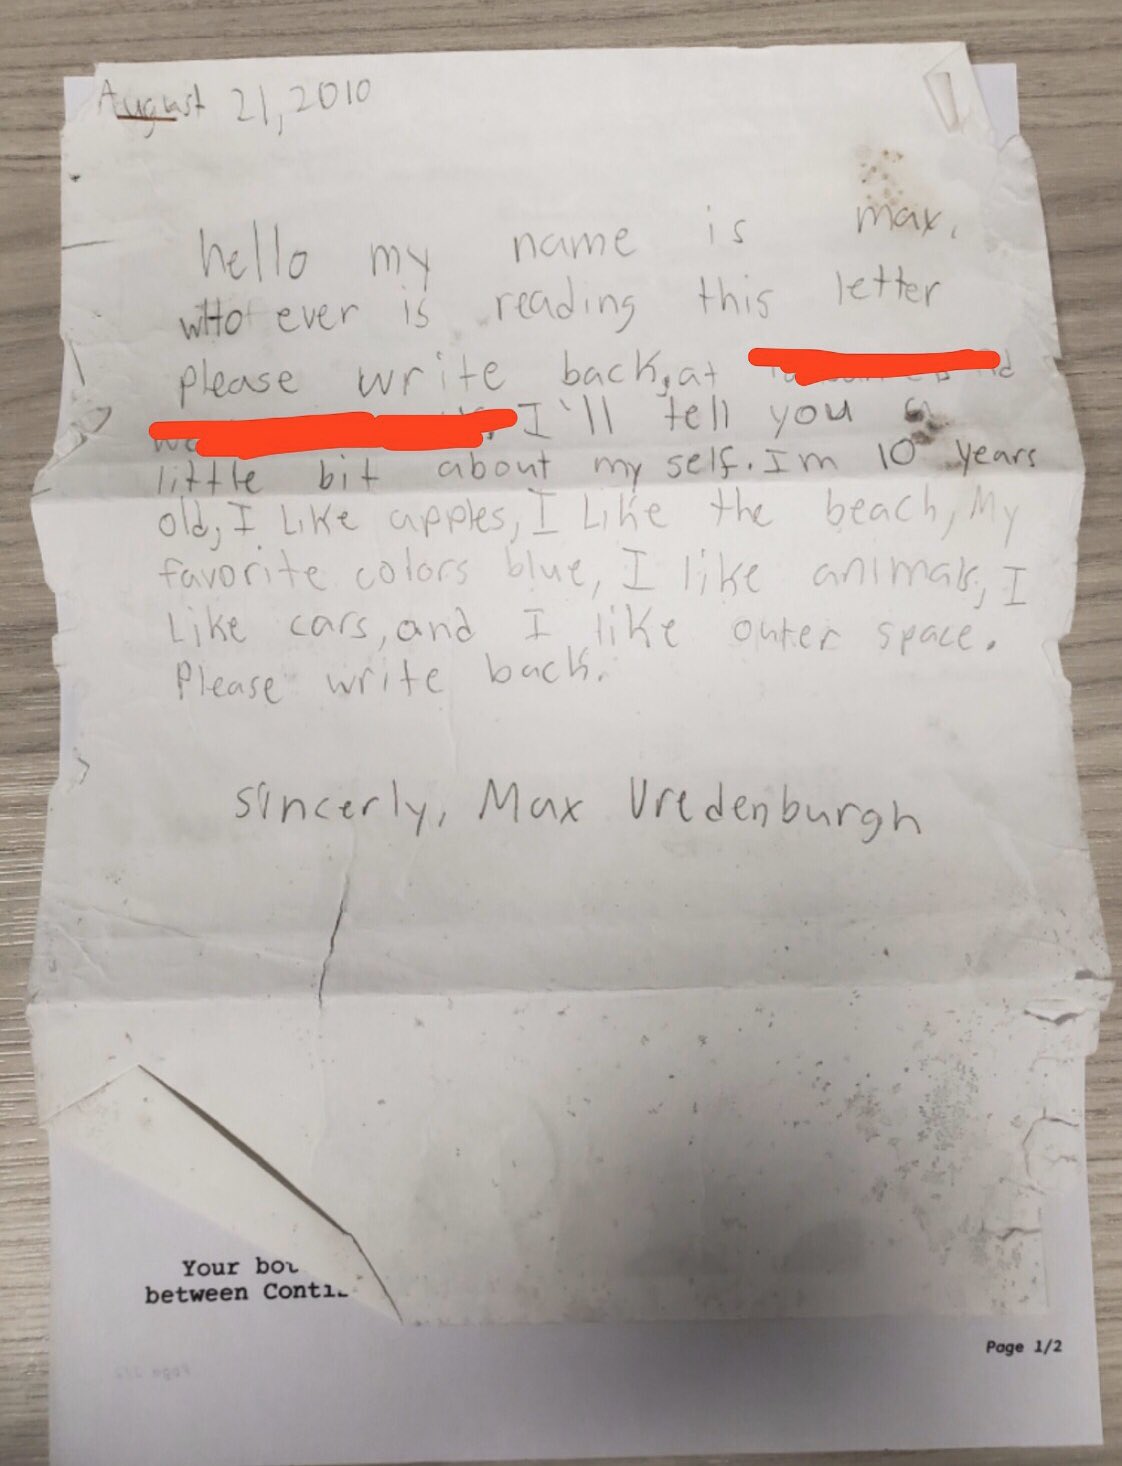 August 21, 2010
hello my name is max.
who ever is reading this letter
please write back, at
I'll tell you a
little bit about my self. Im 10 years
old, I Like apples, I Like the beach, My
favorite colors blue, I like animals, I
Like cars, and I like outer space.
Please write back.
sincerly, Max Vredenburgh
Your
between
Page 1/2